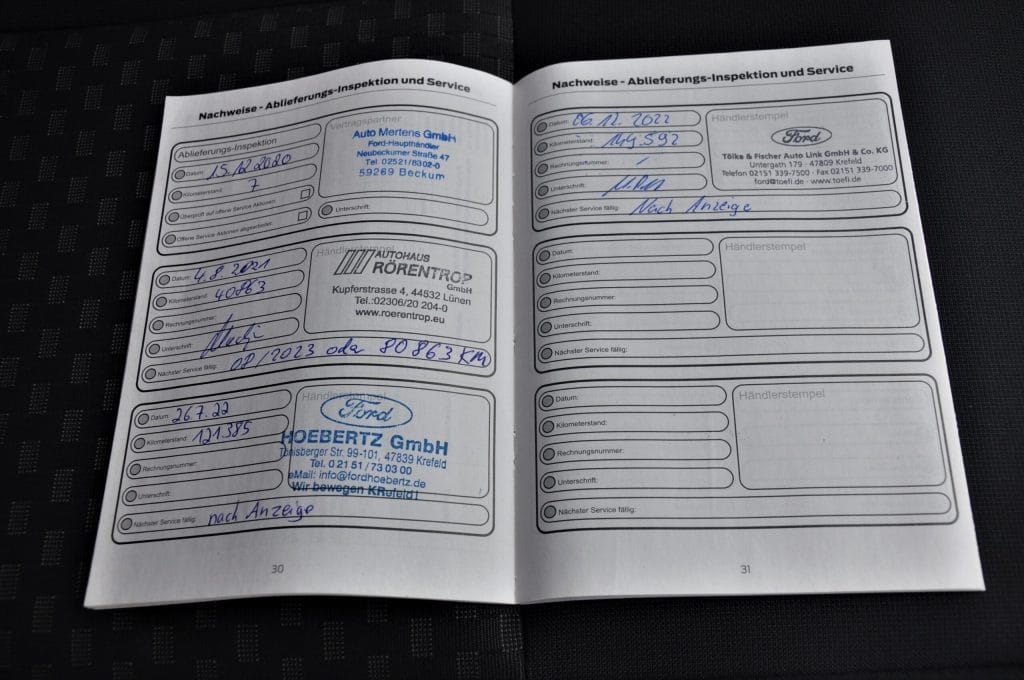 Nachweise - Ablieferungs-Inspektion und Service
Ablieferungs-Inspektion
Datum: 15.12.2020
Kilometerstand: 7
Überprüft auf offene Service Aktionen:
Offene Service Aktionen abgearbeitet:
Vertragspartner
Auto Mertens GmbH
Ford-Haupthändler
Neubeckumer Straße 47
Tel. 02521/8302-0
59269 Beckum
Unterschrift:
Datum: 4.8.2021
Kilometerstand: 40863
Rechnungsnummer:
Unterschrift:
Nächster Service fällig: 08/2023 oda 80863 KM
Händlerstempel
AUTOHAUS
RÖRENTROP
GmbH
Kupferstrasse 4, 44532 Lünen
Tel.:02306/20 204-0
www.roerentrop.eu
Datum: 26.7.22
Kilometerstand: 121385
Rechnungsnummer:
Unterschrift:
Nächster Service fällig: nach Anzeige
Händlerstempel
Ford
HOEBERTZ GmbH
Tönisberger Str. 99-101, 47839 Krefeld
Tel. 0 21 51 / 73 03 00
eMail: info@fordhoebertz.de
Wir bewegen KRefeld!
30
Nachweise - Ablieferungs-Inspektion und Service
Datum: 06.12.2022
Kilometerstand: 144.592
Rechnungsnummer:
Unterschrift:
Nächster Service fällig: Nach Anzeige
Händlerstempel
Ford
Tölke & Fischer Auto Link GmbH & Co. KG
Untergath 179 - 47809 Krefeld
Telefon 02151 339-7500 · Fax 02151 339-7000
ford@toefi.de · www.toefi.de
Datum:
Kilometerstand:
Rechnungsnummer:
Unterschrift:
Nächster Service fällig:
Händlerstempel
Datum:
Kilometerstand:
Rechnungsnummer:
Unterschrift:
Nächster Service fällig:
Händlerstempel
31